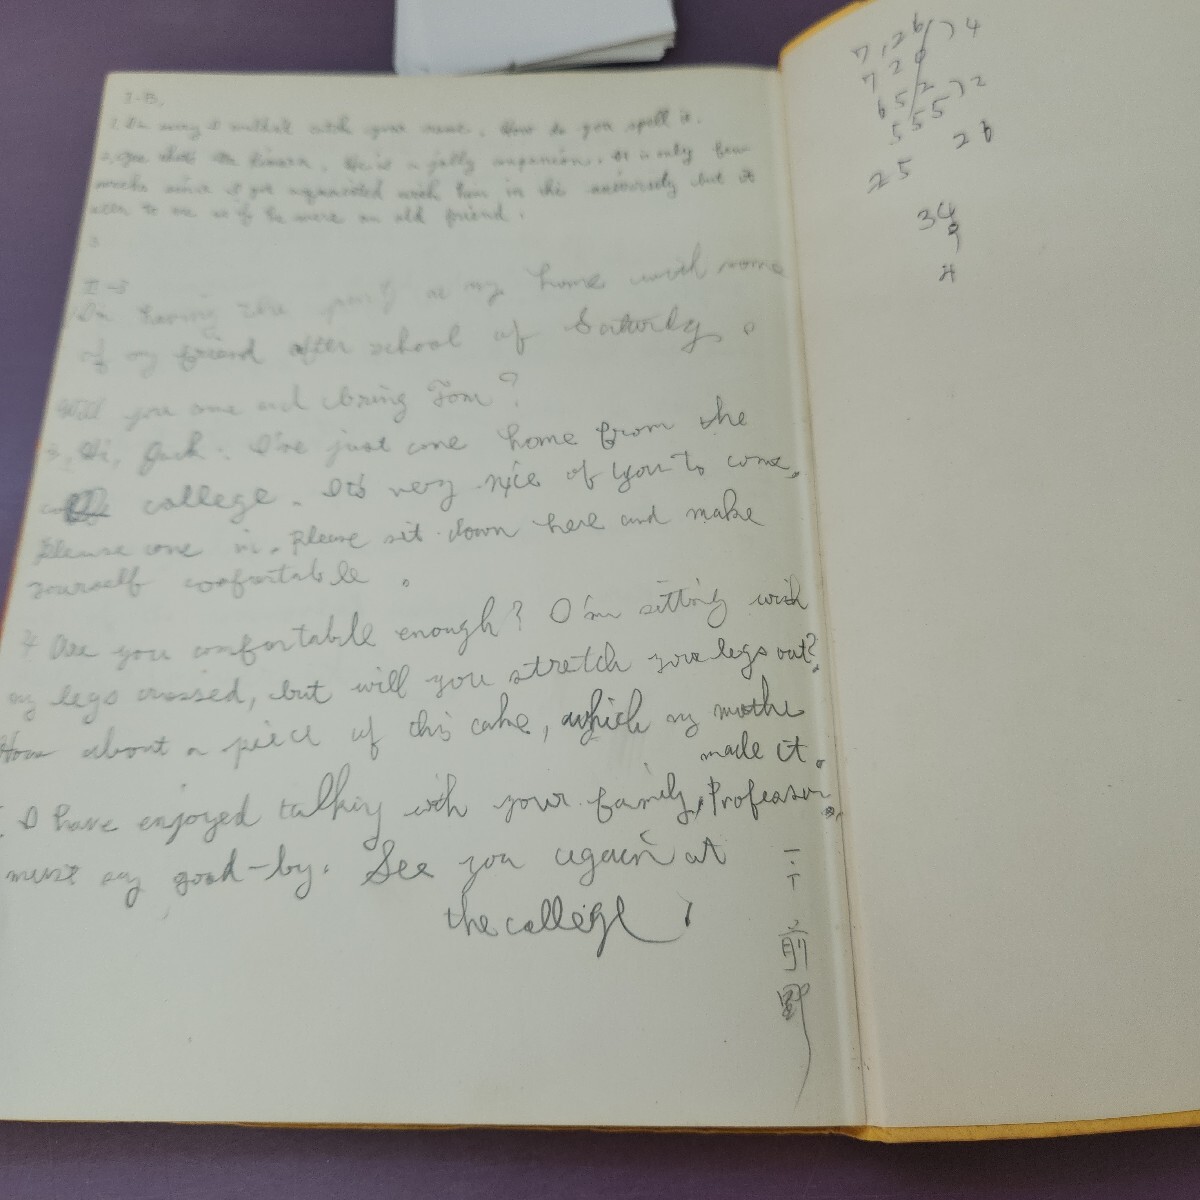 I-B.
catch your name. How do you spell it.
He is a jolly companion. It is only few
weeks since I got in this university but it
to me as if he were an old friend.
3
II-3
I'm having party at my home with some
of my friend after school of Saturdy.
Will you come and bring Tom?
3. Hi, Jack. I've just come home from the
college. It's very nice of you to come.
Please come in. Please sit down here and make
yourself comfortable.
4 Are you comfortable enough? I'm sitting with
my legs crossed, but will you stretch your legs out?
How about a piece of this cake, which my mother
made it.
I have enjoyed talking with your family, Professor.
must say good-by. See you again at
the college.
前野
7,26 4
720
652 2
555
26
25
34
9
4